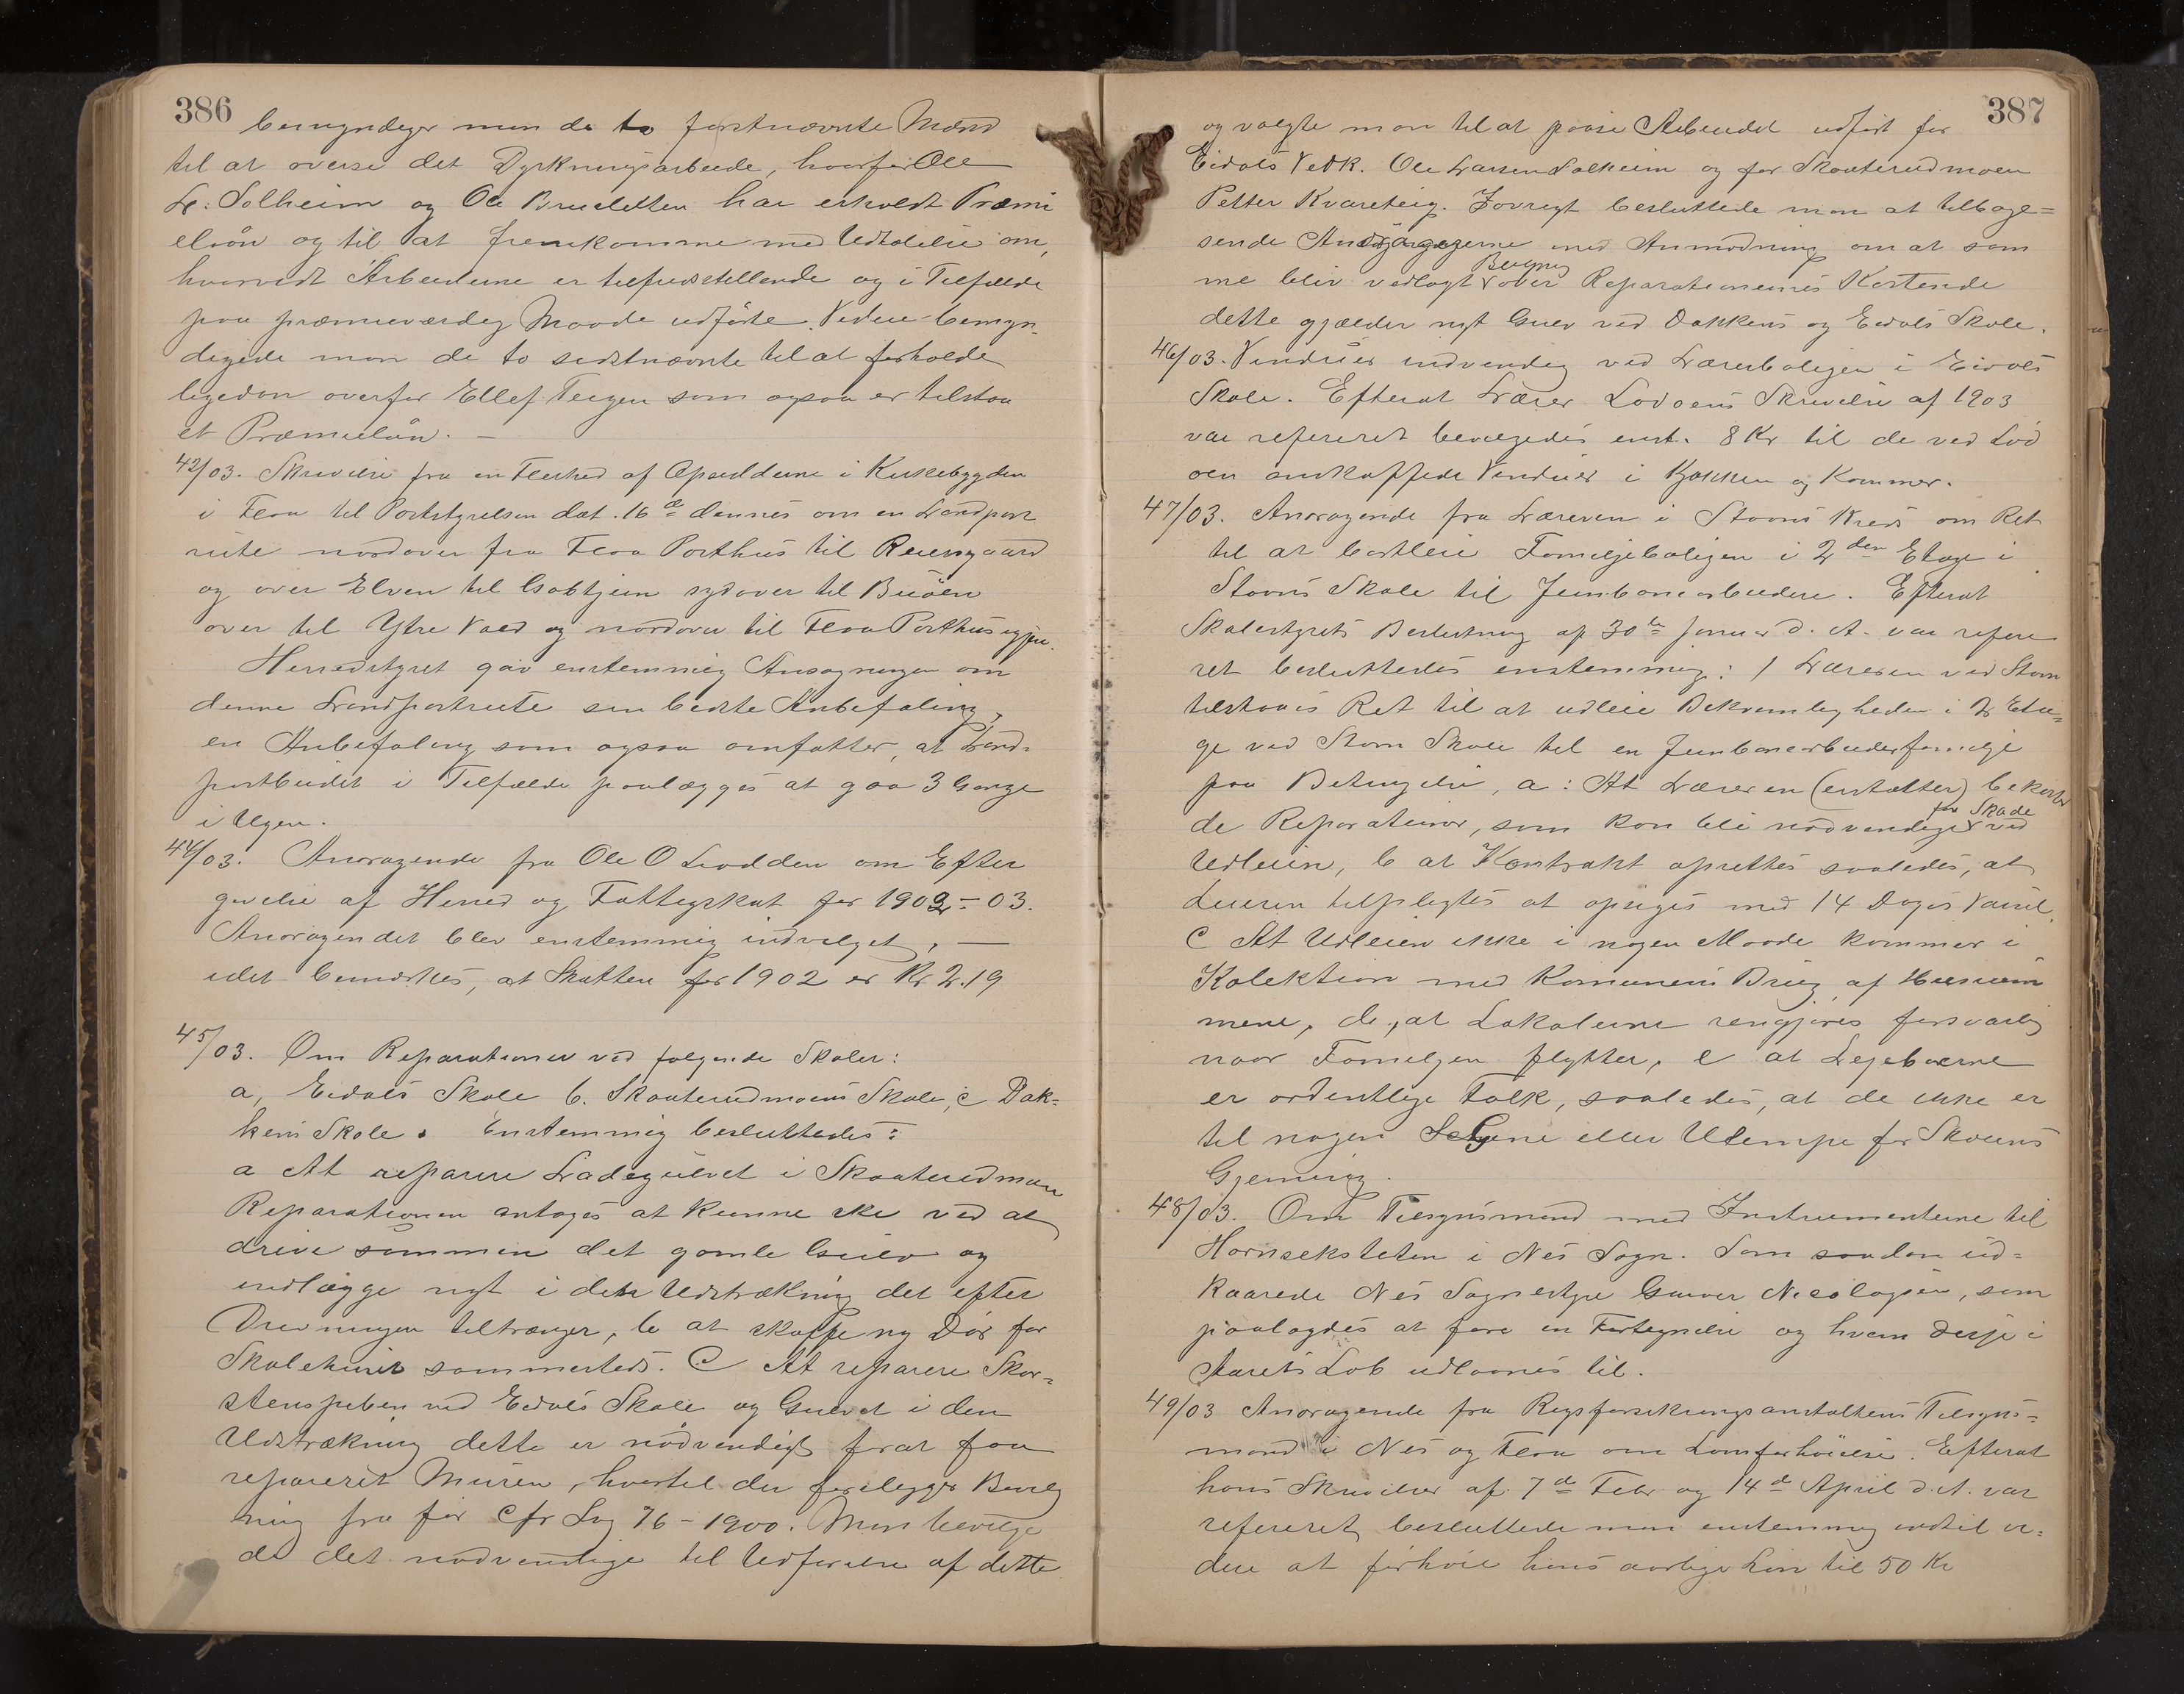 386
bemyndiger man de to førstnævnte Mænd
til at overse det Dyrkningsarbeide, hvorfor Ole
L. Solheim og Ole Brusletten har erholdt Præmi
elaån og til at fremkomme med Udtalelse om,
hvorvidt Arbeiderne er tilfredsstillende og i Tilfælde
paa præmieværdig Maade udførte. Videre bemyn-
digede man de to sidstnævnte til at forholde
ligedan overfor Ellef Teigen som ogsaa er tilstaa
et Præmielån. —
42/03. Skrivelse fra en Flerhed af Opsidderne i Kirkebygden
i Flaa til Poststyrelsen dat. 16de dennes om en Landpost
rute nordover fra Flaa Posthus til Reiersgaard
og over Elven til Gabtjern sydover til Buøen
over til Ytre Vold og nordover til Flaa Posthus igjen.
Herredstyret gav enstemmig Ansøgningen om
denne Landpostrute sin bedste Anbefaling,
en Anbefaling som ogsaa omfatter, at Land-
postbudet i Tilfælde paalægges at gaa 3 Gange
i Ugen.
44/03. Andragende fra Ole O Liodden om Efter
givelse af Herred og Fattigskat for 1902 – 03.
Andragendet blev enstemmig indvilget, —
idet bemærkes, at Skatten for 1902 er Kr 2.19
45/03. Om Reparationer ved følgende Skoler:
a, Eidals Skole b. Skaaterudmoens Skole, c Dok-
kens Skole. Enstemmig besluttedes:
a At reparere Ladegulvet i Skaaterudmoen
Reparationen antages at kunne ske ved at
drive sammen det gamle Gulv og
indlægge nyt i den Udstrækning det efter
Drivningen tiltrænger, b at skaffe ny Dør for
Skolehuset sammesteds. C At reparere Skor-
stenspiben ved Eidals Skole og Gulvet i den
Udstrækning dette er nødvendigt forat faa
repareret Muren, hvortil der foreligger Bevilg
ning fra før cfr Sag 76 – 1900. Man bevilge
de det nødvendige til Udførelse af dette
387
og valgte man til at paase Arbeidet udført for
Eidals Vedk. Ole Larsen Solheim og for Skaaterudmoen
Petter Kvareteig. Forøvrigt besluttede man at tilbage-
sende Andragegerne med Anmodning om at sam
me bliv vedlagt Beregng over Reparationernes Kostende
dette gjælder nyt Gulv ved Dokkens og Eidals Skole.
46/03. Vinduer indvendig ved Lærerboligen i Eidals
Skole. Efterat Lærer Lodoens Skrivelse af 1903
var refereret bevilgedes enst. 8 Kr til de ved Lod
oen anskaffede Vinduer i Kjøkken og Kammer.
47/03. Andragende fra Læreren i Stavns Kreds om Ret
til at bortleie Familjeboligen i 2den Etage i
Stavns Skole til Jernbanearbeidere. Efterat
Skolestyrets Beslutning af 30te Januar d. A. var refere
ret besluttedes enstemmig: 1 Læreren ved Stavn
tilstaaes Ret til at udleie Bekvemligheden i 2 Eta-
ge ved Stavn Skole til en Jernbanearbeiderfamilje
paa Betingelse, a: At Læreren (erstatter) bekoster
de Reparationer, som kan bli nødvendige for Skade ved
Udleien, b at Kontrakt oprettes saaledes, at
Leieren tilpligtes at opsiges med 14 Dages Varsel.
C At Udleien ikke i nogen Maade kommer i
Kolektion med Komunens Brug af Husrum
mene, d., at Lokalerne rengjøres forsvarlig
naar Familjen flytter, e at Lejeboerne
er ordentlige Folk, saaledes, at de ikke er
til nogen Gene eller Ulempe for Skolens
Gjerning.
48/03. Om Tilsynsmand med Instrumenterne til
Hornseksteten i Nes Sogn. Som saadan ud-
kaarede Nes Sognestyre Gunner Nicolaysen, som
paalagdes at føre en Fortegnelse og hvem disse i
Aarets Løb udlaanes til.
49/03 Andragende fra Rigsforsikringsanstaltens Tilsyns-
mand i Nes og Flaa om Lønforhøielse. Efterat
hans Skrivelser af 7de Febr og 14de April d. A. var
refereret, besluttede man enstemmig indtil vi-
dere at forhøie hans aarlige Løn til 50 Kr